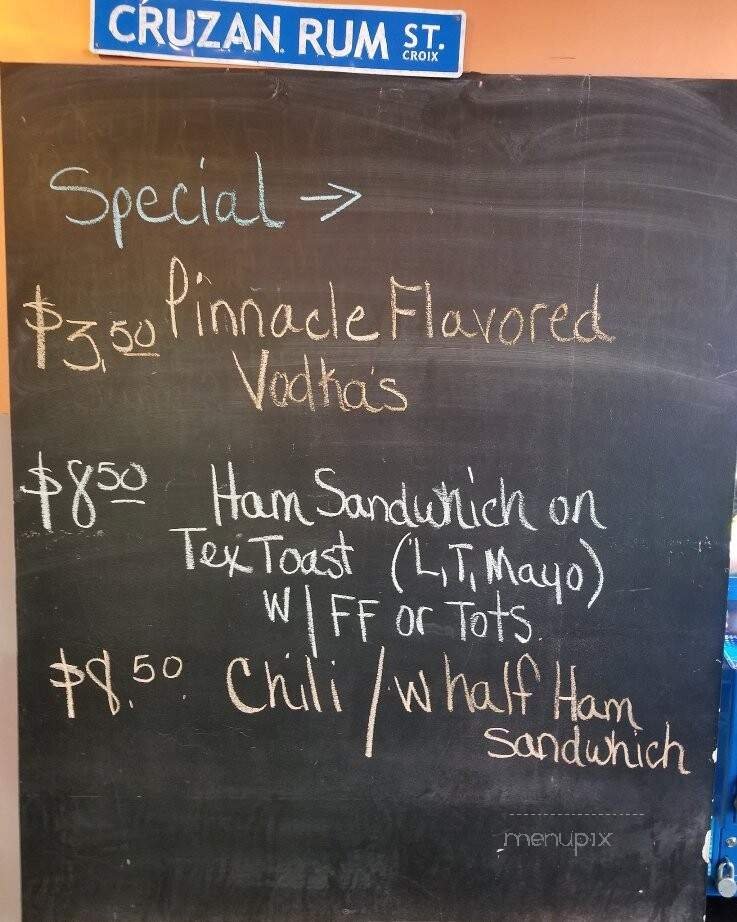 CRUZAN RUM ST.
CROIX
Special →
$3.50 Pinnacle Flavored
Vodka's
$8.50 Ham Sandwhich on
Tex Toast (L, T, Mayo)
W/FF or Tots.
$8.50. Chili /w half Ham
Sandwhich
menupix